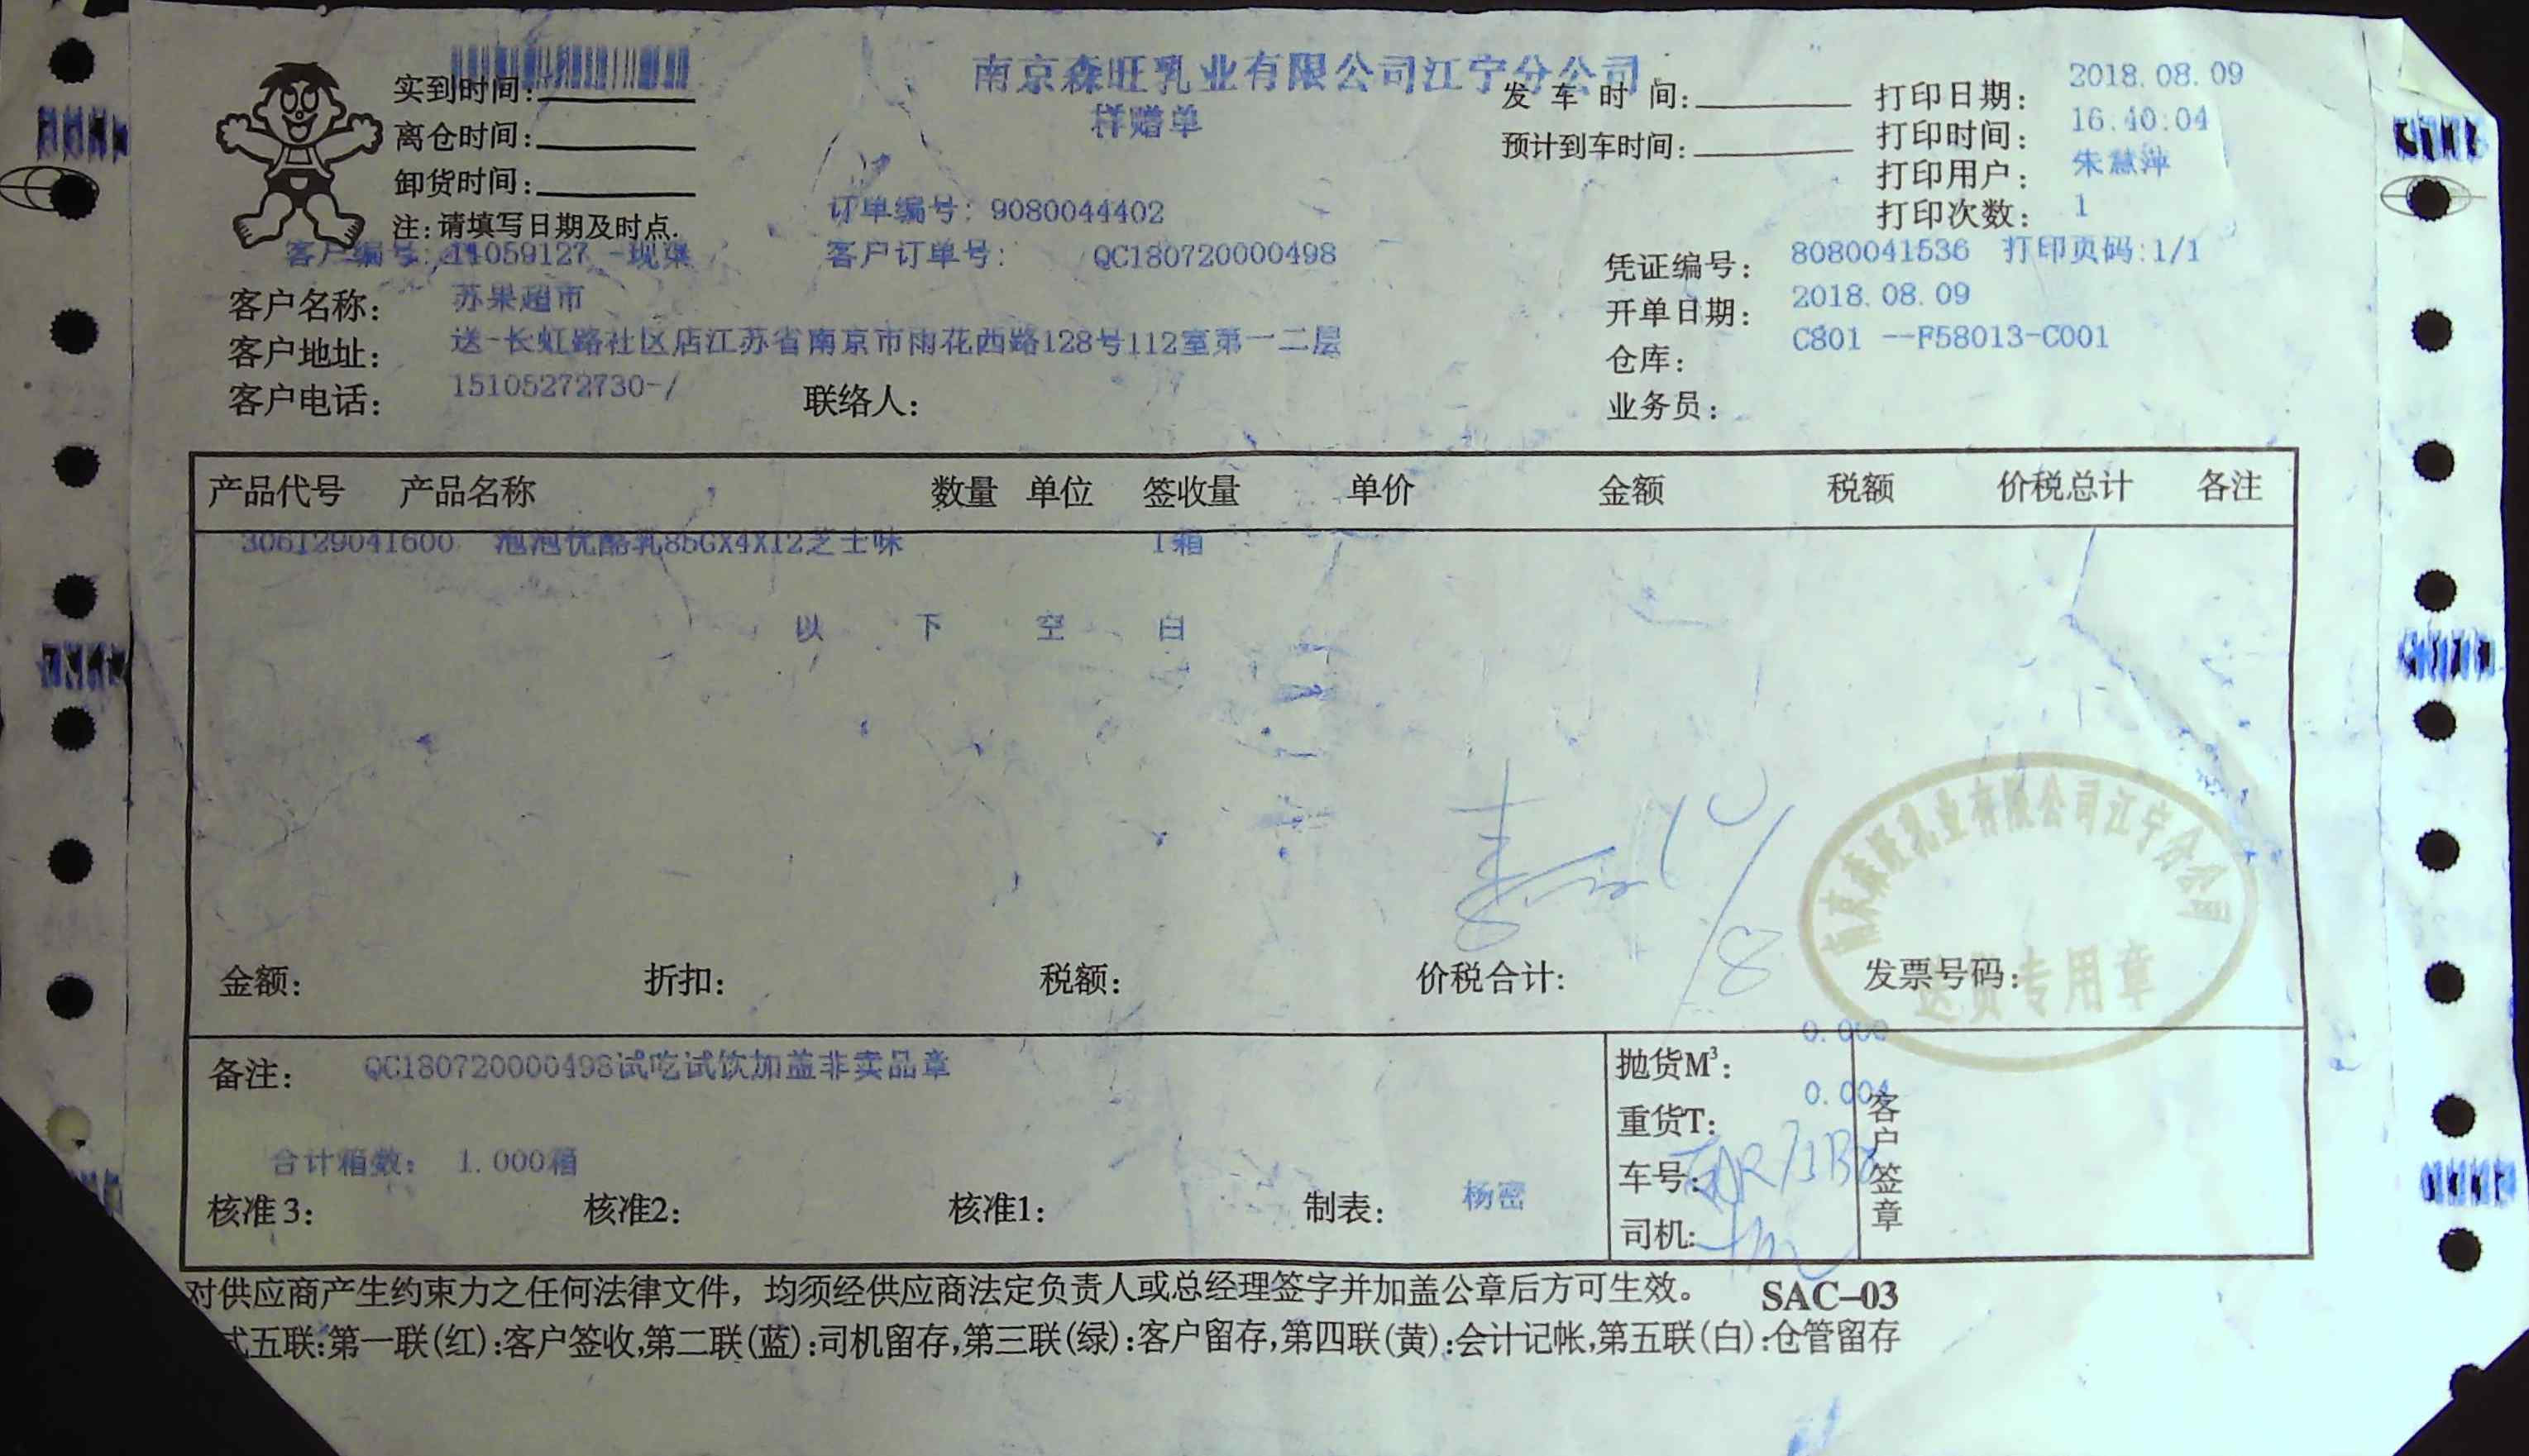 南京森旺乳业有限公司江宁分公司
样赠单
实到时间:
离仓时间:
卸货时间:
注:请填写日期及时点.
发车时间:
预计到车时间:
打印日期: 2018.08.09
打印时间: 16:40:04
打印用户: 朱慧萍
打印次数: 1
订单编号: 9080044402
客户编号: 11059127 -现渠 客户订单号: QC180720000498
凭证编号: 8080041536 打印页码:1/1
客户名称: 苏果超市
开单日期: 2018.08.09
客户地址: 送-长虹路社区店江苏省南京市雨花西路128号112室第一二层
仓库: C801 --F58013-C001
客户电话: 15105272730-/ 联络人:
业务员:
产品代号 产品名称 数量 单位 签收量 单价 金额 税额 价税总计 各注
306129041600 泡泡优酪乳85GX4X12芝士味 1箱
以 下 空 白
8
南京森旺乳业有限公司江宁分公司
送货专用章
金额: 折扣: 税额: 价税合计: 发票号码:
备注: QC180720000498试吃试饮加盖非卖品章
抛货M³: 0.000
重货T: 0.004
合计箱数: 1.000箱
车号:
司机:
客户签章
核准3: 核准2: 核准1: 制表: 杨密
对供应商产生约束力之任何法律文件，均须经供应商法定负责人或总经理签字并加盖公章后方可生效。 SAC-03
式五联:第一联(红):客户签收,第二联(蓝):司机留存,第三联(绿):客户留存,第四联(黄):会计记帐,第五联(白):仓管留存